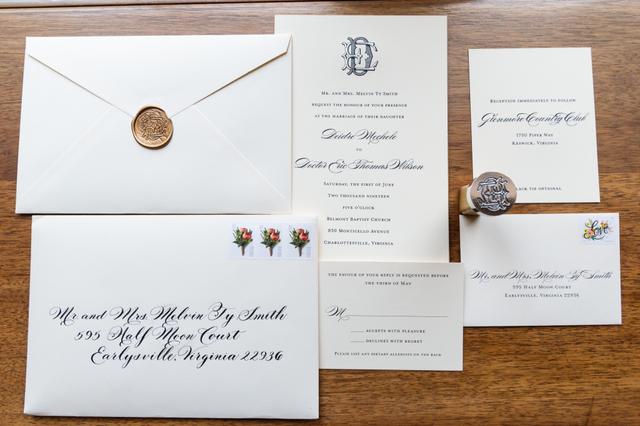 Mr. and Mrs. Melvin Ty Smith
request the honour of your presence
at the marriage of their daughter
Deidre Mechele
to
Doctor Eric Thomas Wilson
Saturday, the first of June
Two thousand nineteen
five o'clock
Belmont Baptist Church
830 Monticello Avenue
Charlottesville, Virginia
Reception immediately to follow
Glenmore Country Club
1750 Piper Way
Keswick, Virginia
tie optional
Mr and Mrs Melvin Ty Smith
595 Half Moon Court
Earlysville, Virginia 22936
The favour of your reply is requested before
the third of May
M
accepts with pleasure
declines with regret
Please list any dietary allergies on the back
Love
Mr. and Mrs. Melvin Ty Smith
595 Half Moon Court
Earlysville, Virginia 22936